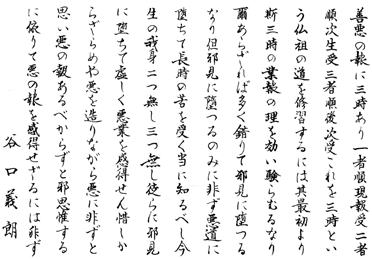 善悪の報に三時あり一者順現報受二者
順次生受三者順後次受これを三時とい
う仏祖の道を修習するには其最初より
斯三時の業報の理を効い験らむるなり
爾あらざれば多く錯りて邪見に堕つる
なり但邪見に堕つるのみに非ず悪道に
堕ちて長時の苦を受く当に知るべし今
生の我身二つ無し三つ無し徒らに邪見
に堕ちて虚しく悪業を感得せん惜しか
らざらめや悪を造りながら悪に非ずと
思い悪の報あるべからずと邪思惟する
に依りて悪の報を感得せざるには非ず
谷口義朗